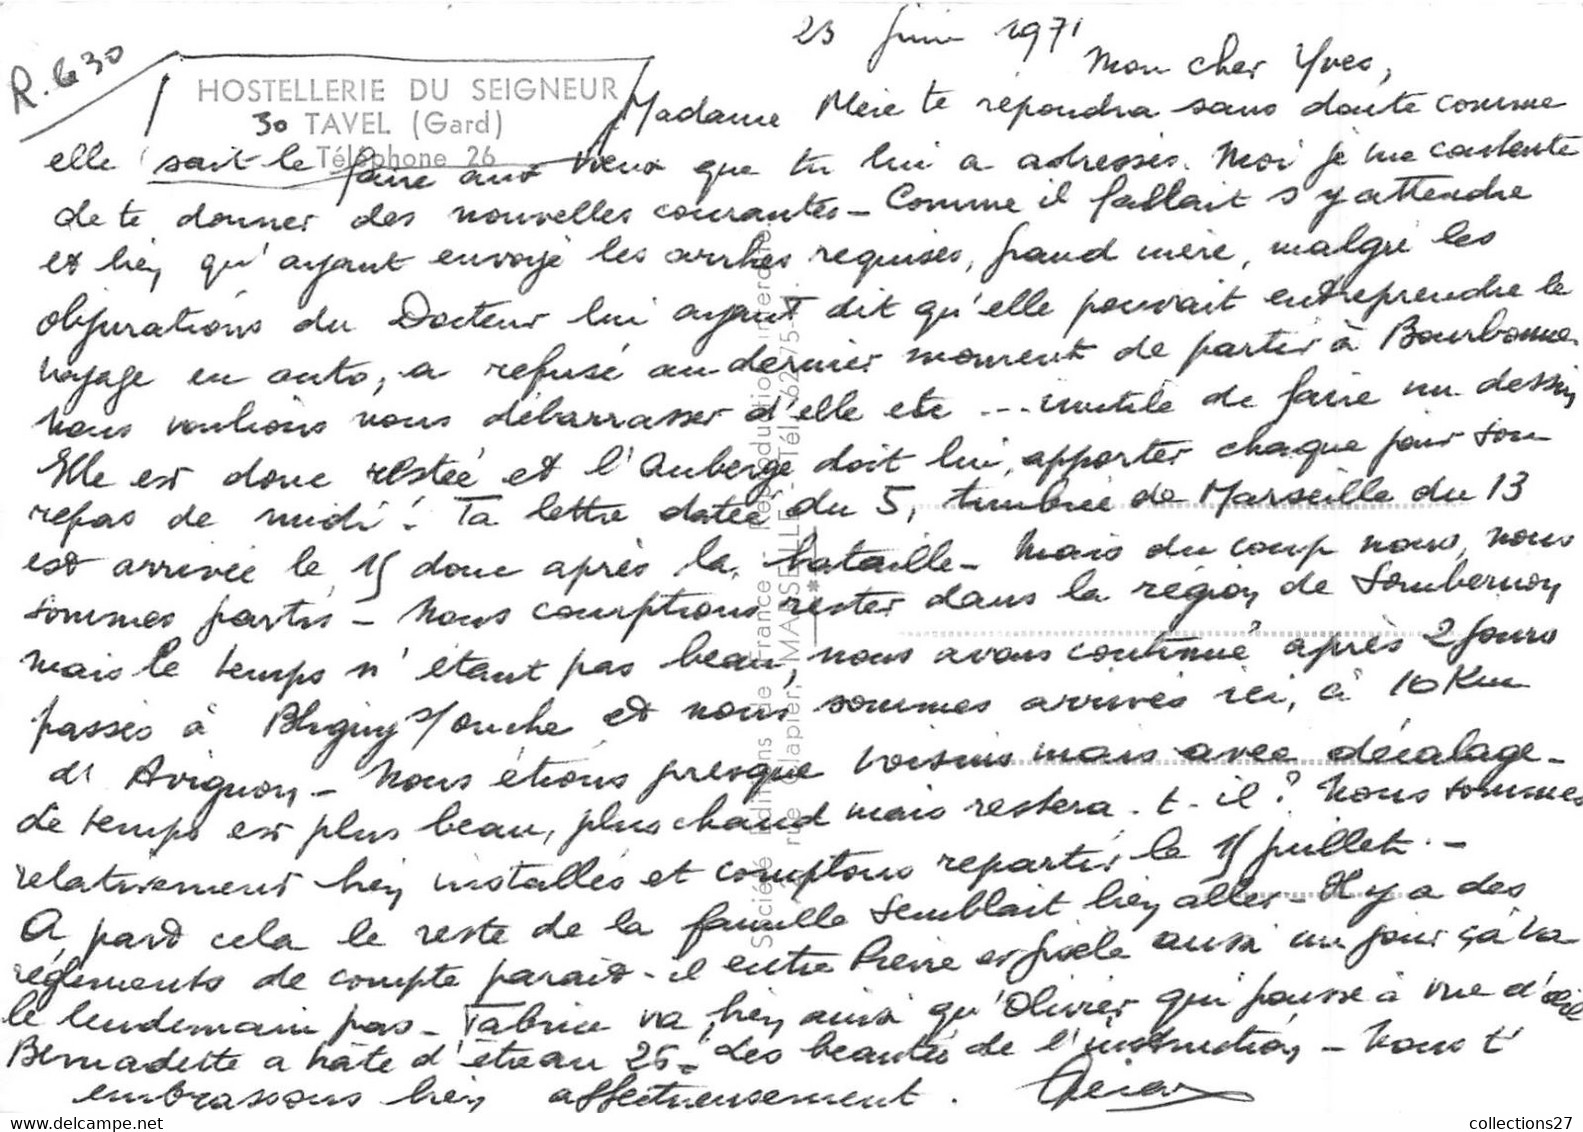 23 juin 1971
R. G 30
Mon cher Yves,
HOSTELLERIE DU SEIGNEUR
30 TAVEL (Gard)
Téléphone 26
Madame Mère te répondra sans doute comme
elle sait le faire aux vœux que tu lui a adressés. Moi je me contente
de te donner des nouvelles courantes - Comme il fallait s'y attendre
et bien qu'ayant envoyé les arrhes requises, grand mère, malgré les
objurations du Docteur lui ayant dit qu'elle pouvait entreprendre le
voyage en auto, a refusé au dernier moment de partir à Bourbonne.
Nous voulions nous débarrasser d'elle etc ... inutile de faire un dessin
Elle est donc restée et l'Auberge doit lui apporter chaque jour son
repas de midi! Ta lettre datée du 5, timbrée de Marseille du 13
est arrivée le 15 donc après la bataille - Mais du coup nous, nous
sommes partis - Nous comptions rester dans la région de Sombernon
mais le temps n'étant pas beau, nous avons continué après 2 jours
passés à Bligny s/ouche et nous sommes arrivés ici, à 10 Km
d'Avignon - Nous étions presque voisins mais avec décalage -
Le temps est plus beau, plus chaud mais restera-t-il? Nous sommes
relativement bien installés et comptons repartir le 15 juillet. -
A part cela le reste de la famille semblait bien aller - Il y a des
règlements de compte parait-il entre Pierre et Gisèle aussi un jour ça va
le lendemain pas - Fabrice va bien ainsi qu'Olivier qui pousse à vue d'œil
Bernadette a hâte d'être au 26 - des beautés de l'instruction - Nous t'
embrassons bien affectueusement.
Société Editions de France - Reproduction interdite.
rue Clapier, MARSEILLE - Tél. 62-75-
collections27